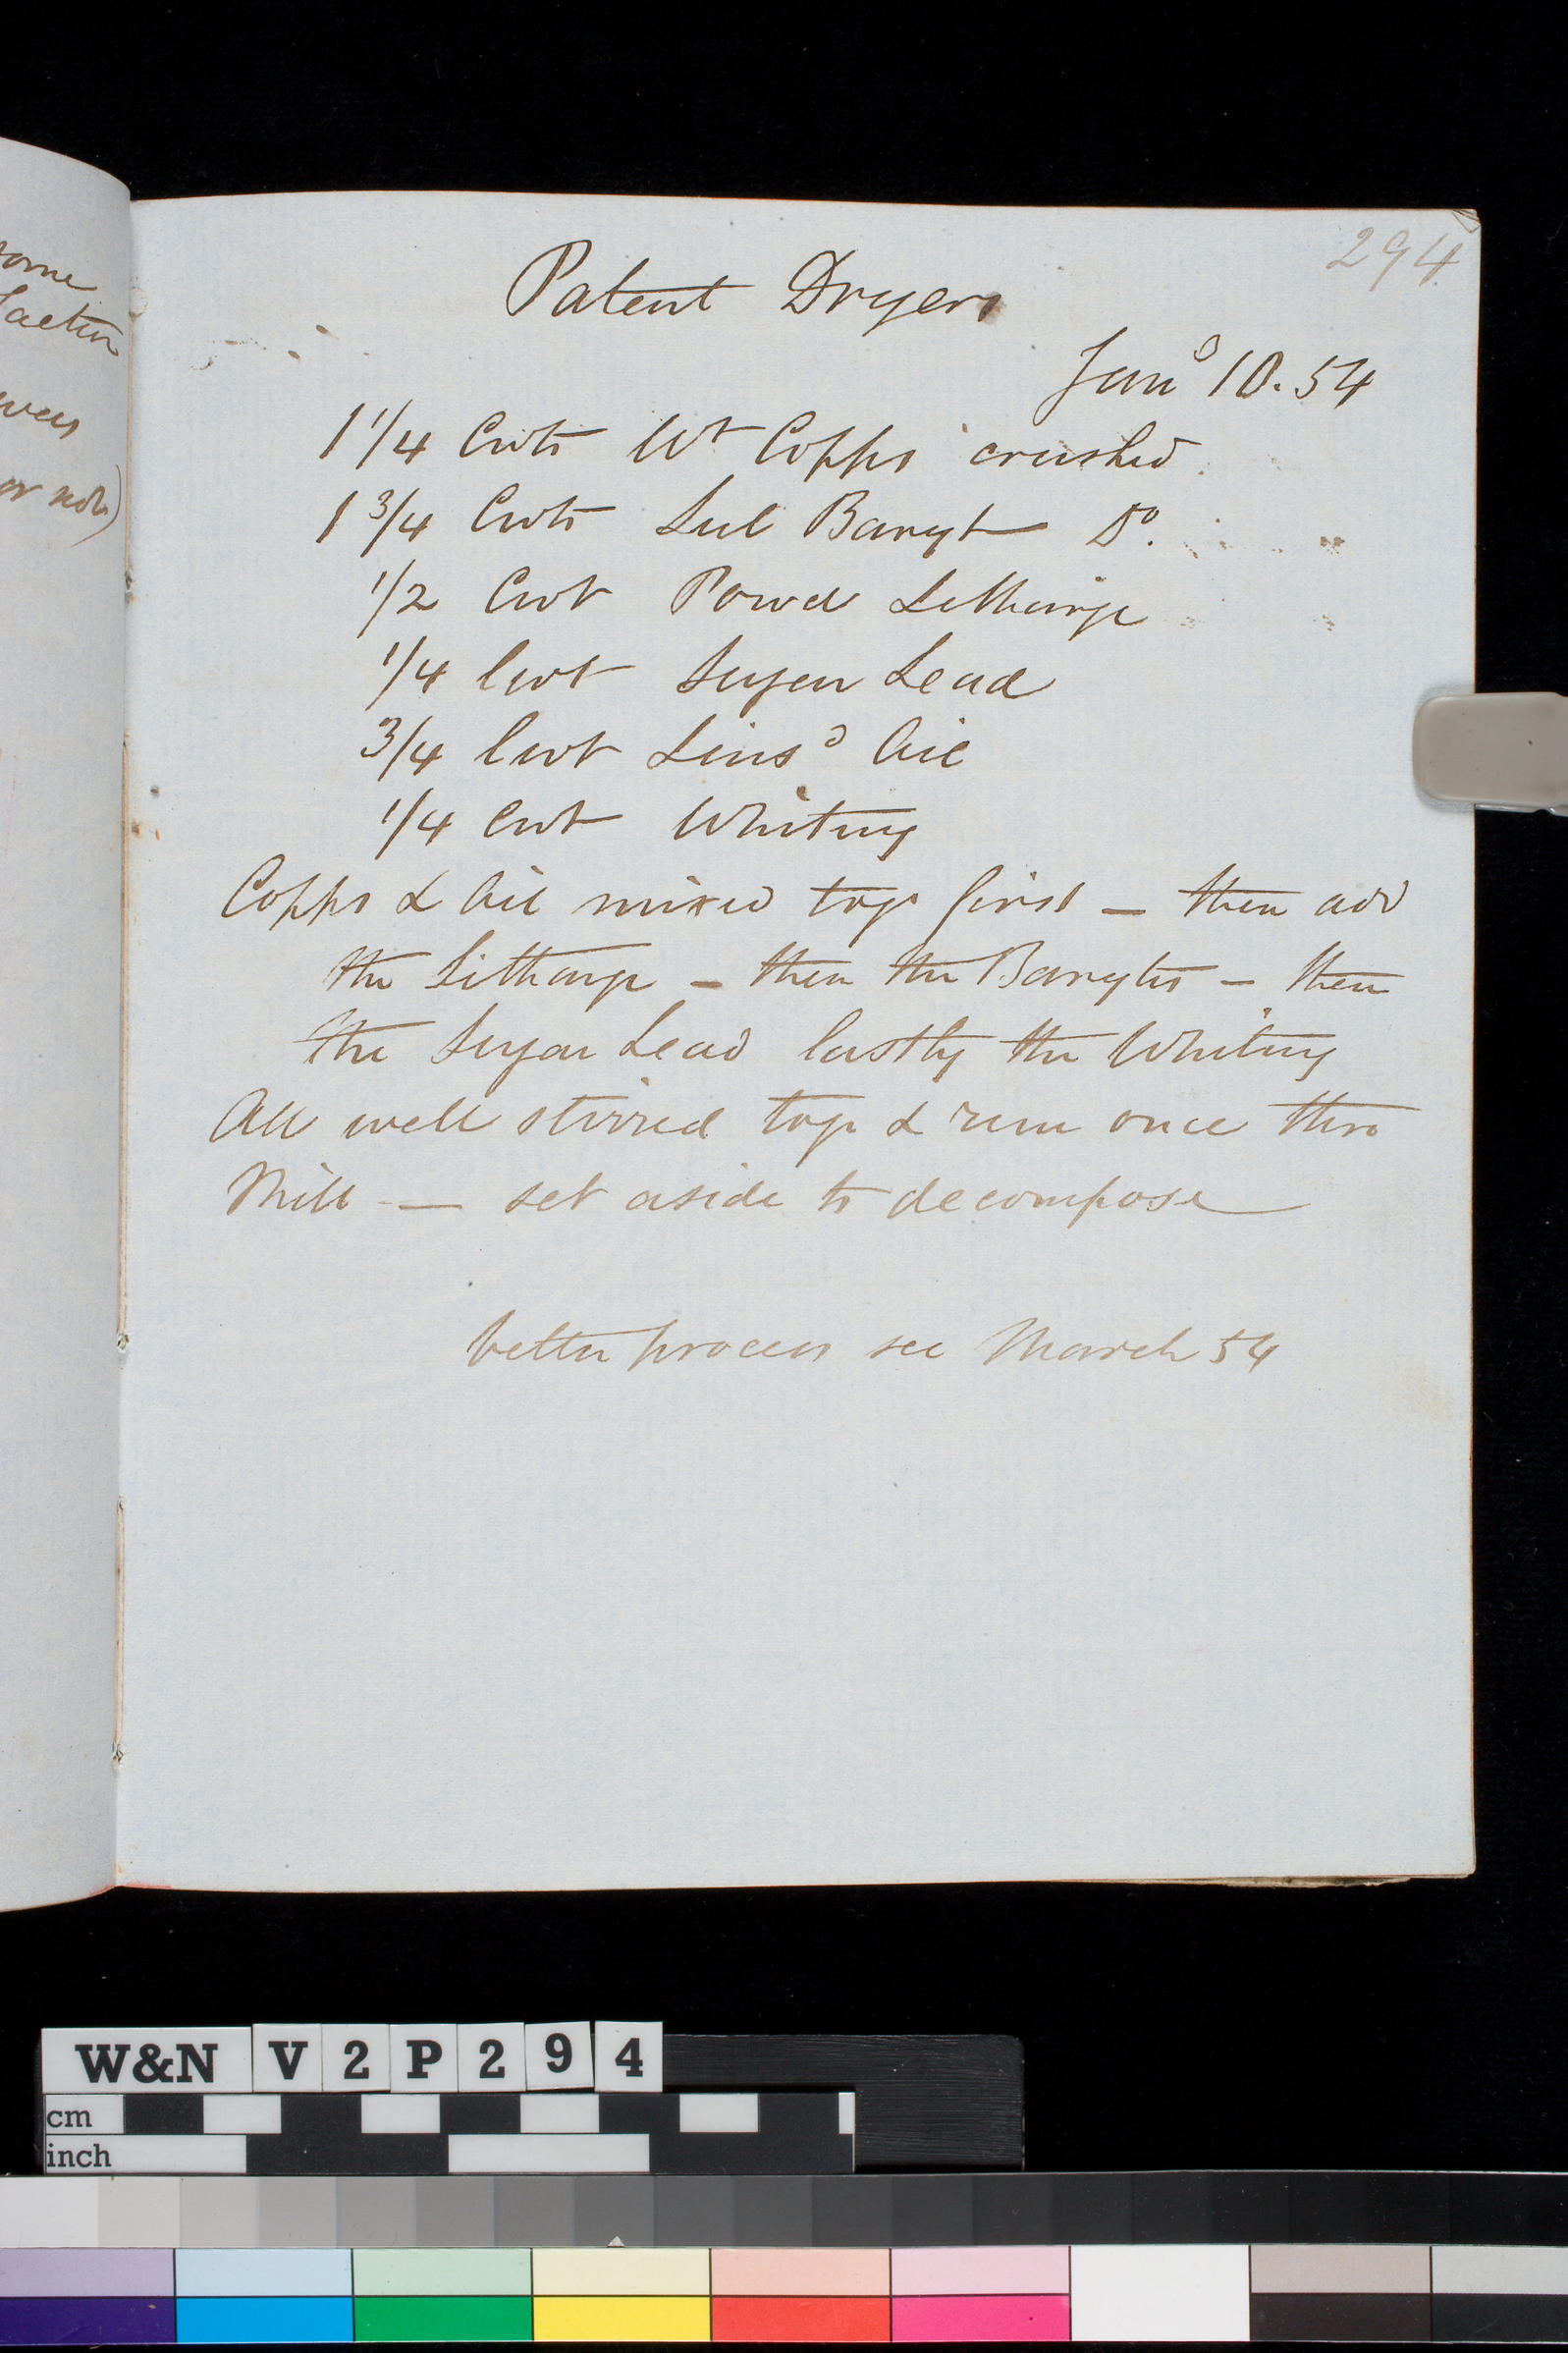 294
Patent Dryers
Jany 10. 54
1 1/4 Cwts Wt Copps crushed
1 3/4 Cwts Sul Baryt Do.
1/2 Cwt Powd Litharge
1/4 Cwt Sugar Lead
3/4 Cwt Linsd Oil
1/4 Cwt Whiting
Copps & Oil mixed togr first — then add
the Litharge — then the Barytes — then
the Sugar Lead lastly the Whiting
All well stirred togr & run once thro
Mill — set aside to decompose
better process see March 54
some
or not)
W&N V2P294
cm
inch